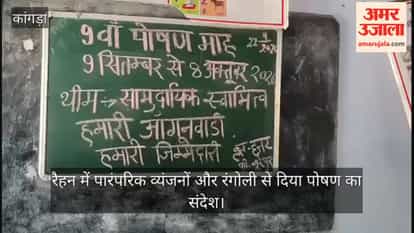 कांगड़ा
अमर
उजाला
amarujala.com
9वाँ पोषण माह
9 सितम्बर से 8 अक्तूबर 2026
थीम → सामुदायिक स्वामित्व
हमारी आँगनवाडी
हमारी जिम्मेदारी
रैहन में पारंपरिक व्यंजनों और रंगोली से दिया पोषण का
संदेश।